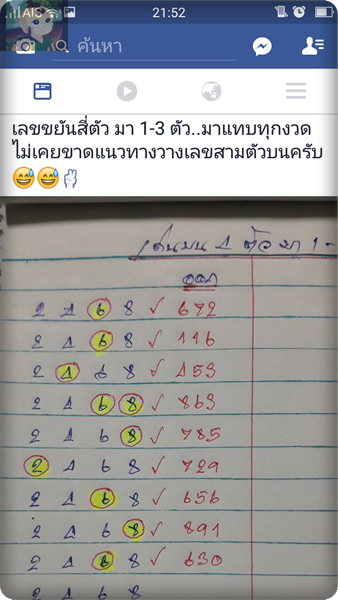 AIS 21:52
ค้นหา
เลขขยันสี่ตัว มา 1-3 ตัว..มาแทบทุกงวด
ไม่เคยขาดแนวทางวางเลขสามตัวบนครับ
😅😅✌
เด่นบน 4 ตัว มา 1-
ออก
2 4 6 8 ✓ 672
2 4 6 8 ✓ 116
2 4 6 8 ✓ 453
2 4 6 8 ✓ 863
2 4 6 8 ✓ 785
2 4 6 8 ✓ 729
2 4 6 8 ✓ 656
2 4 6 8 ✓ 891
2 4 6 8 ✓ 630
2 4 6 8